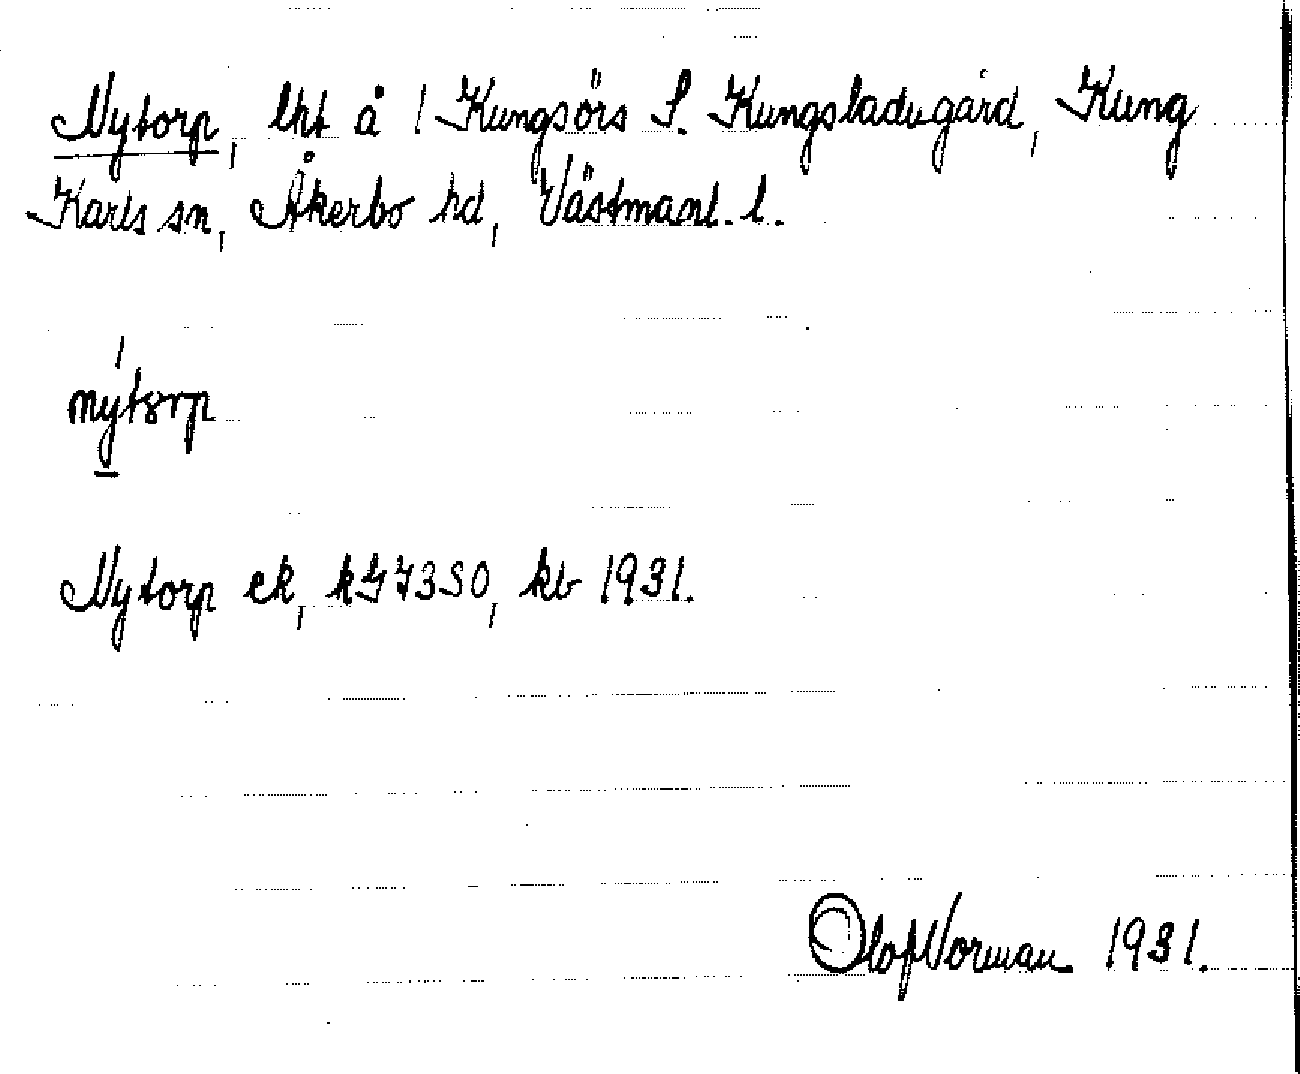 Nytorp, lht å 1 Kungsörs S. Kungsladugård, Kung
Karls sn, Åkerbo hd, Västmanl. l.
nýtorp
Nytorp ek, kb 1931.
Olof Norman 1931.